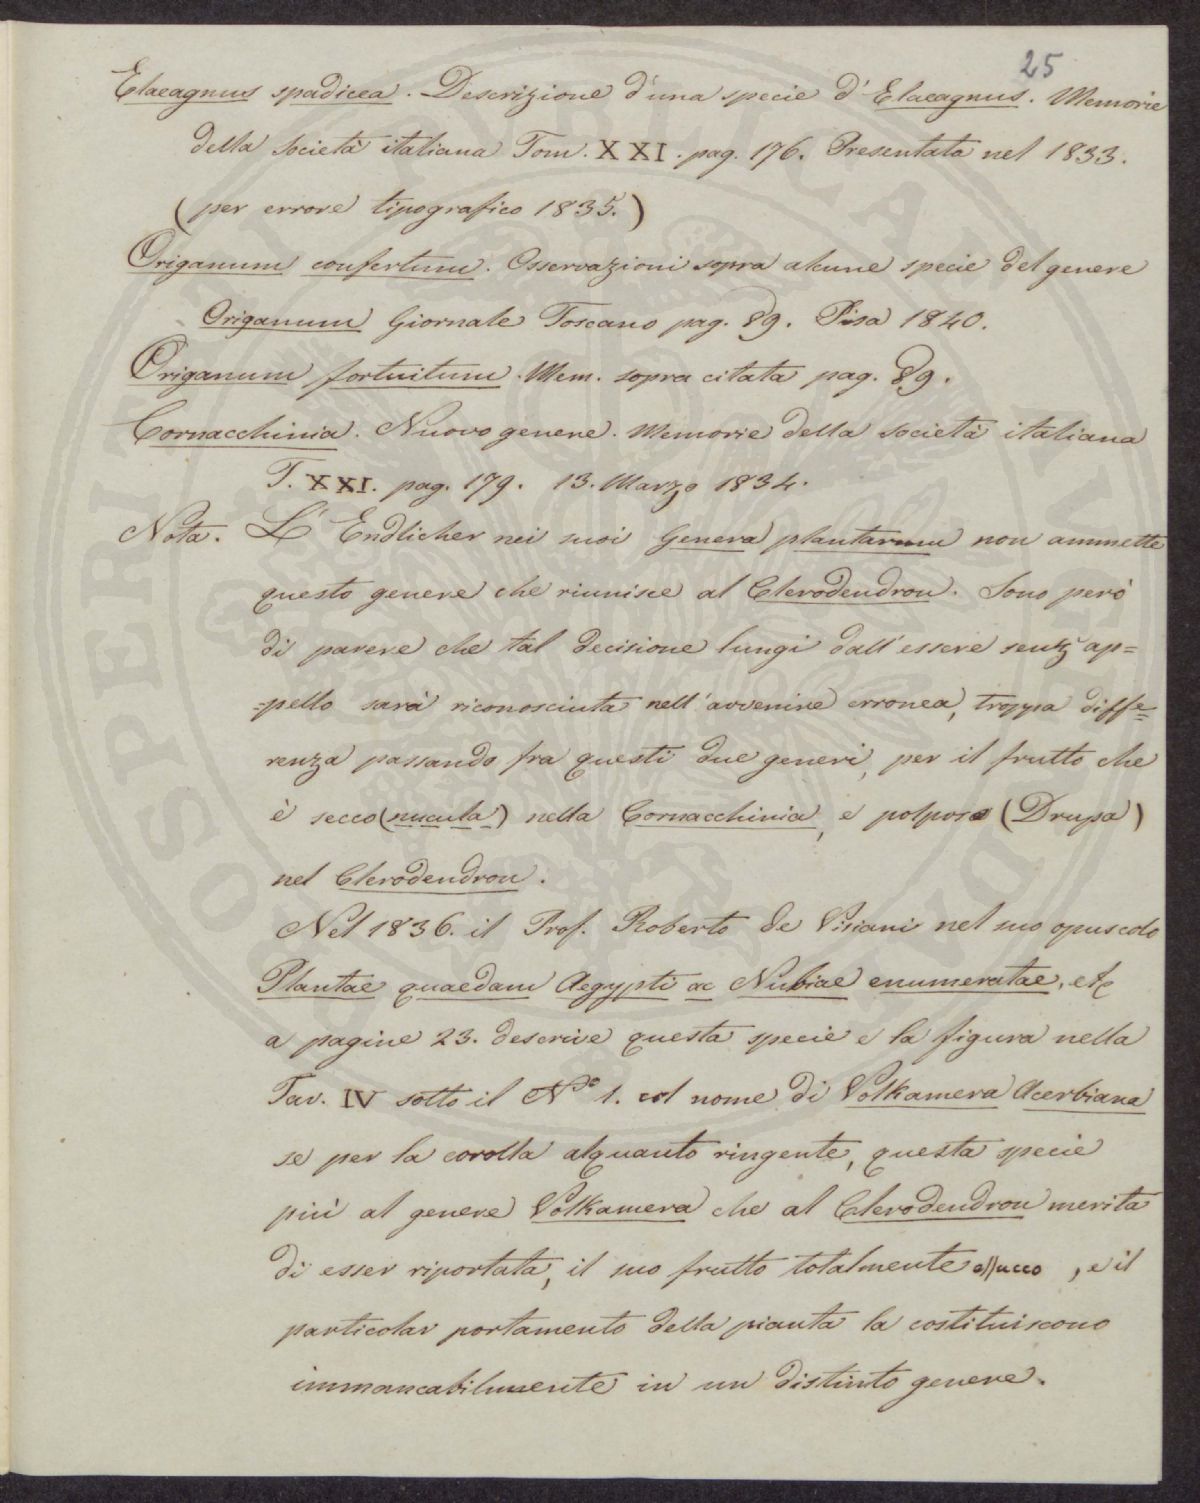 25
Elaeagnus spadicea. Descrizione d'una specie d'Elaeagnus. Memorie
della Società italiana Tom. XXI. pag. 176. Presentata nel 1833.
(per errore tipografico 1835.)
Origanum confertum. Osservazioni sopra alcune specie del genere
Origanum Giornale Toscano pag. 89. Pisa 1840.
Origanum fortuitum. Mem. sopra citata pag. 89.
Cornacchinia. Nuovo genere. Memorie della Società italiana
T. XXI. pag. 179. 13. Marzo 1834.
Nota. L'Endlicher nei suoi Genera plantarum non ammette
questo genere che riunisce al Clerodendron. Sono però
di parere che tal decisione lungi dall'essere senz'ap=
=pello sarà riconosciuta nell'avvenire erronea, troppa diffe=
renza passando fra questi due generi, per il frutto che
è secco (nucula) nella Cornacchinia, e polposo (Drupa)
nel Clerodendron.
Nel 1836. il Prof. Roberto de Visiani nel suo opuscolo
Plantae quaedam Aegypti ac Nubiae enumeratae, etc
a pagine 23. descrive questa specie e la figura nella
Tav. IV sotto il N.o 1. col nome di Volkamera Acerbiana
se per la corolla alquanto ringente, questa specie
più al genere Volkamera che al Clerodendron merita
di esser riportata, il suo frutto totalmente , e il
particolar portamento della pianta la costituiscono
immancabilmente in un distinto genere.